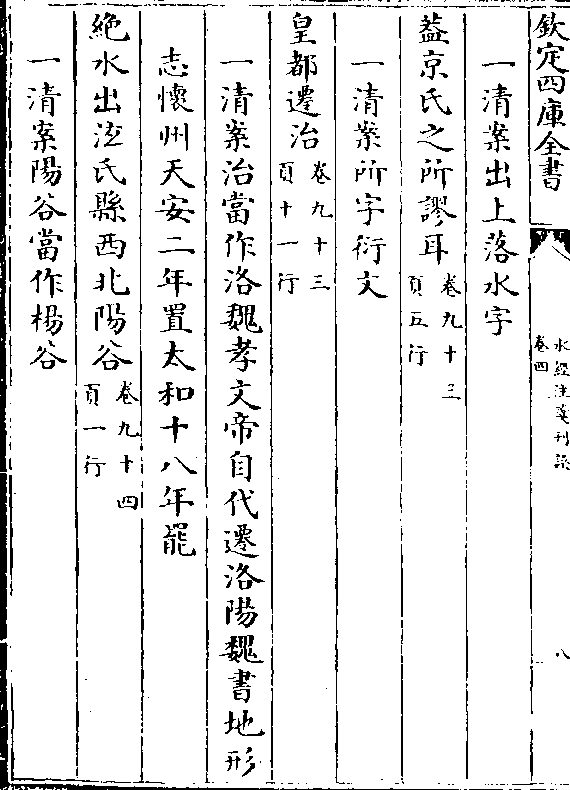 欽定四庫全書
水經注箋刊誤
卷四
八
一清案出上落水字
葢京氏之所謬耳卷九十三
頁五行
一清案所字衍文
皇都遷治卷九十三
頁十一行
一清案治當作洛魏孝文帝自代遷洛陽魏書地形
志懷州天安二年置太和十八年罷
絶水出泫氏縣西北陽谷卷九十四
頁一行
一清案陽谷當作楊谷